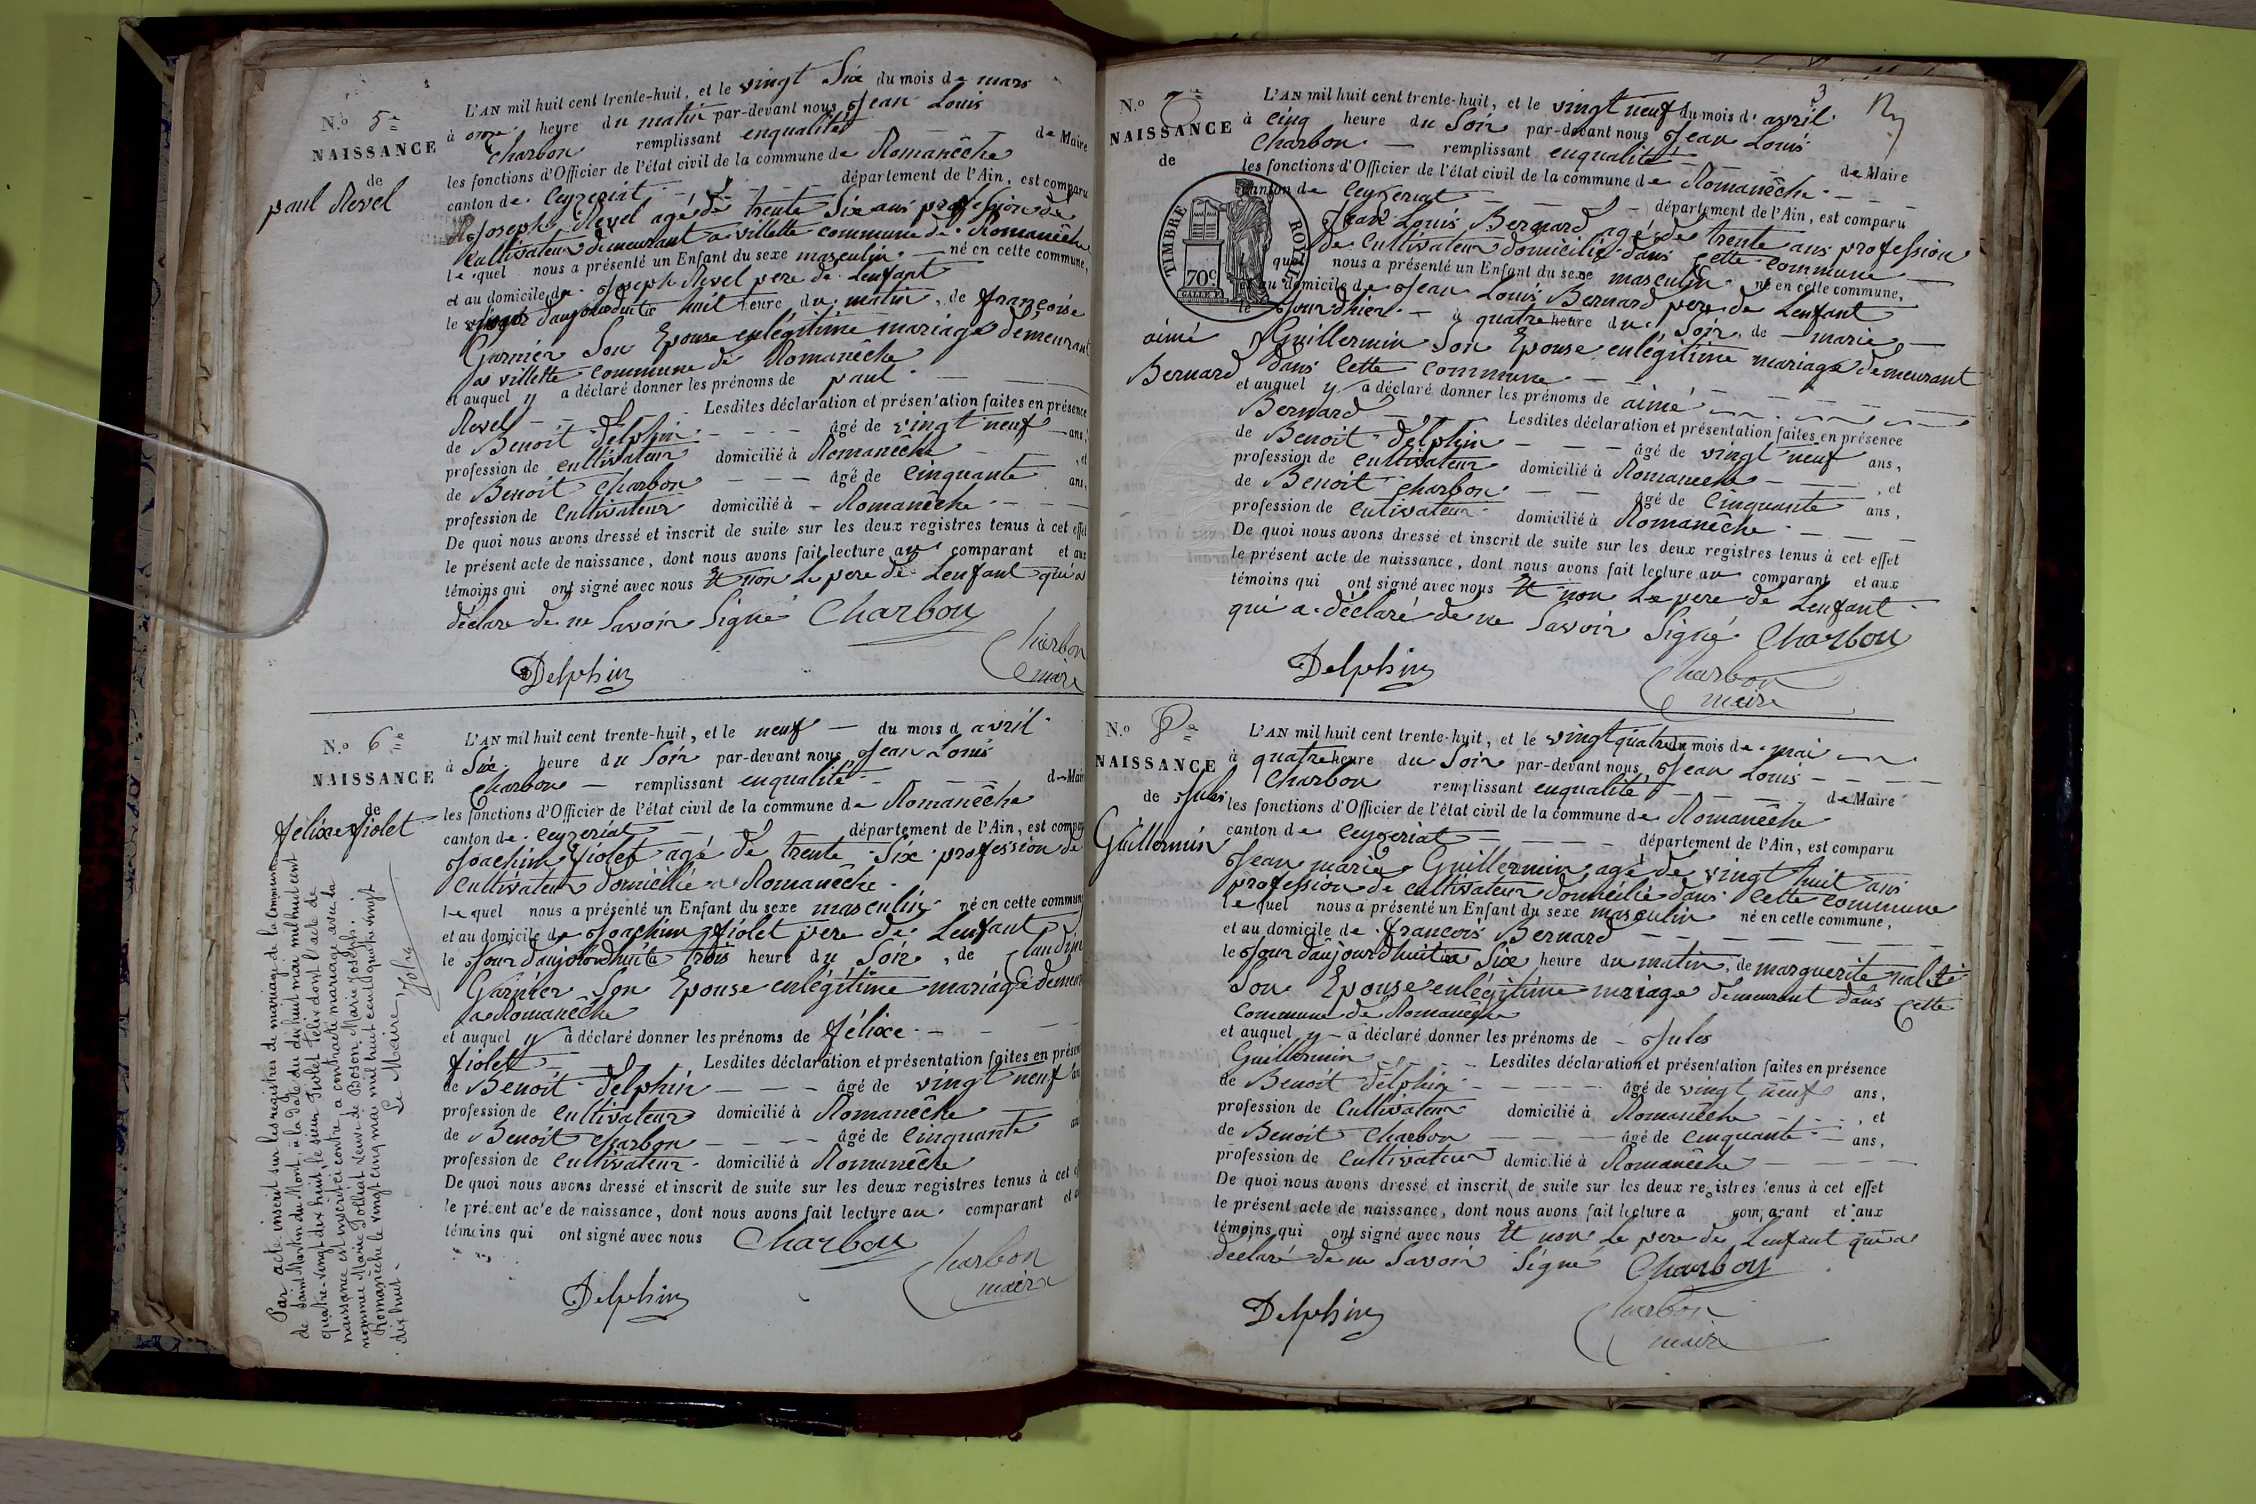 N.o 5e
NAISSANCE
de
paul Revel
L'AN mil huit cent trente-huit, et le vingt Six du mois de mars
à onze heure du matin par-devant nous Jean Louis
Charbon remplissant enqualité de Maire
les fonctions d'Officier de l'état civil de la commune de Romanêche
canton de Ceyzeriat département de l'Ain, est comparu
Joseph Revel agé de trente Six ans profession de
Cultivateur demeurant a villette commune de Romanêche
le quel nous a présenté un Enfant du sexe masculin né en cette commune,
et au domicile de Joseph Revel pere de Lenfant
le daujourdhui a huit heure du matin, de françoise
Garnier Son Epouse enlégitime mariage demeurant
a villette commune de Romanêche
et auquel y a déclaré donner les prénoms de paul
Revel Lesdites déclaration et présentation faites en présence
de Benoit delphin âgé de vingt neuf ans,
profession de Cultivateur domicilié à Romanêche , et
de Benoit Charbon âgé de Cinquante ans,
profession de Cultivateur domicilié à Romanêche
De quoi nous avons dressé et inscrit de suite sur les deux registres tenus à cet effet
le présent acte de naissance, dont nous avons fait lecture au comparant et aux
témoins qui ont signé avec nous Et non Le pere de Lenfant qui a
déclare de ne Savoir Signé Charbon
Charbon
maire
Delphin
N.o 6e
NAISSANCE
de
félixe fiolet
L'AN mil huit cent trente-huit, et le neuf du mois d avril
à Six heure du Soir par-devant nous Jean Louis
Charbon remplissant enqualité de Maire
les fonctions d'Officier de l'état civil de la commune de Romanêche
canton de Ceyzeriat département de l'Ain, est comparu
Joachim fiolet agé de trente Six profession de
Cultivateur domicilié a Romanêche
le quel nous a présenté un Enfant du sexe masculin né en cette commune
et au domicile de Joachim fiolet pere de Lenfant
le Jour daujourdhui à trois heure du Soir, de Claudine
Garnier Son Epouse enlégitime mariage demeurant
a Romanêche
et auquel y a déclaré donner les prénoms de félixe
fiolet Lesdites déclaration et présentation faites en présence
de Benoit delphin âgé de vingt neuf ans
profession de Cultivateur domicilié à Romanêche
de Benoit Charbon âgé de Cinquante
profession de Cultivateur domicilié à Romanêche
De quoi nous avons dressé et inscrit de suite sur les deux registres tenus à cet
le présent acte de naissance, dont nous avons fait lecture au comparant et
témoins qui ont signé avec nous Charbon
Charbon
maire
Delphin
Par acte inscrit sur les registres de mariage de la Commune
de Saint Martin du Mont, à la date du dix huit mai mil huit cent
quatre-vingt dix huit, le sieur Fiolet Félix dont l'acte de
naissance est inscrit ci contre a contracté mariage avec la
nommée Marie Jolliat veuve de Boson, Marie Joseph.
Romanêche le vingt cinq mai mil huit cent quatre vingt
dix huit
Le Maire,
N.o 7e
NAISSANCE
de
aimé
Bernard
3
TIMBRE ROYAL
70c
L'AN mil huit cent trente-huit, et le vingt neuf du mois d' avril
à cinq heure du Soir par-devant nous Jean Louis
Charbon remplissant enqualité de Maire
les fonctions d'Officier de l'état civil de la commune de Romanêche
canton de Ceyzeriat département de l'Ain, est comparu
Jean Louis Bernard agé de trente ans profession
de Cultivateur domicilié dans Cette commune
quel nous a présenté un Enfant du sexe masculin né en cette commune,
au domicile de Jean Louis Bernard pere de Lenfant
le Jour dhier à quatre heure du Soir, de marie
Guillermin Son Epouse enlégitime mariage demeurant
dans Cette commune
et auquel y a déclaré donner les prénoms de aimé
Bernard Lesdites déclaration et présentation faites en présence
de Benoit delphin âgé de vingt neuf ans,
profession de Cultivateur domicilié à Romanêche , et
de Benoit Charbon âgé de Cinquante ans,
profession de Cultivateur domicilié à Romanêche
De quoi nous avons dressé et inscrit de suite sur les deux registres tenus à cet effet
le présent acte de naissance, dont nous avons fait lecture au comparant et aux
témoins qui ont signé avec nous Et non Le pere de Lenfant
qui a déclaré de ne Savoir Signé Charbon
Charbon
maire
Delphin
N.o 8e
NAISSANCE
de Jules
Guillermin
L'AN mil huit cent trente-huit, et le vingt quatre du mois de mai
à quatre heure du Soir par-devant nous Jean Louis
Charbon remplissant enqualité de Maire
les fonctions d'Officier de l'état civil de la commune de Romanêche
canton de Ceyzeriat département de l'Ain, est comparu
Jean marie Guillermin agé de vingt huit ans
profession de cultivateur domicilié dans Cette commune
le quel nous a présenté un Enfant du sexe masculin né en cette commune,
et au domicile de francois Bernard
le Jour daujourdhui a Six heure du matin, de marguerite
Son Epouse enlégitime mariage demeurant dans Cette
Commune de Romanêche
et auquel y a déclaré donner les prénoms de Jules
Guillermin Lesdites déclaration et présentation faites en présence
de Benoit delphin âgé de vingt neuf ans,
profession de Cultivateur domicilié à Romanêche , et
de Benoit Charbon âgé de Cinquante ans,
profession de Cultivateur domicilié à Romanêche
De quoi nous avons dressé et inscrit de suite sur les deux registres tenus à cet effet
le présent acte de naissance, dont nous avons fait lecture a comparant et aux
témoins qui ont signé avec nous Et non Le pere de Lenfant qui a
déclaré de ne Savoir Signé Charbon
Charbon
maire
Delphin